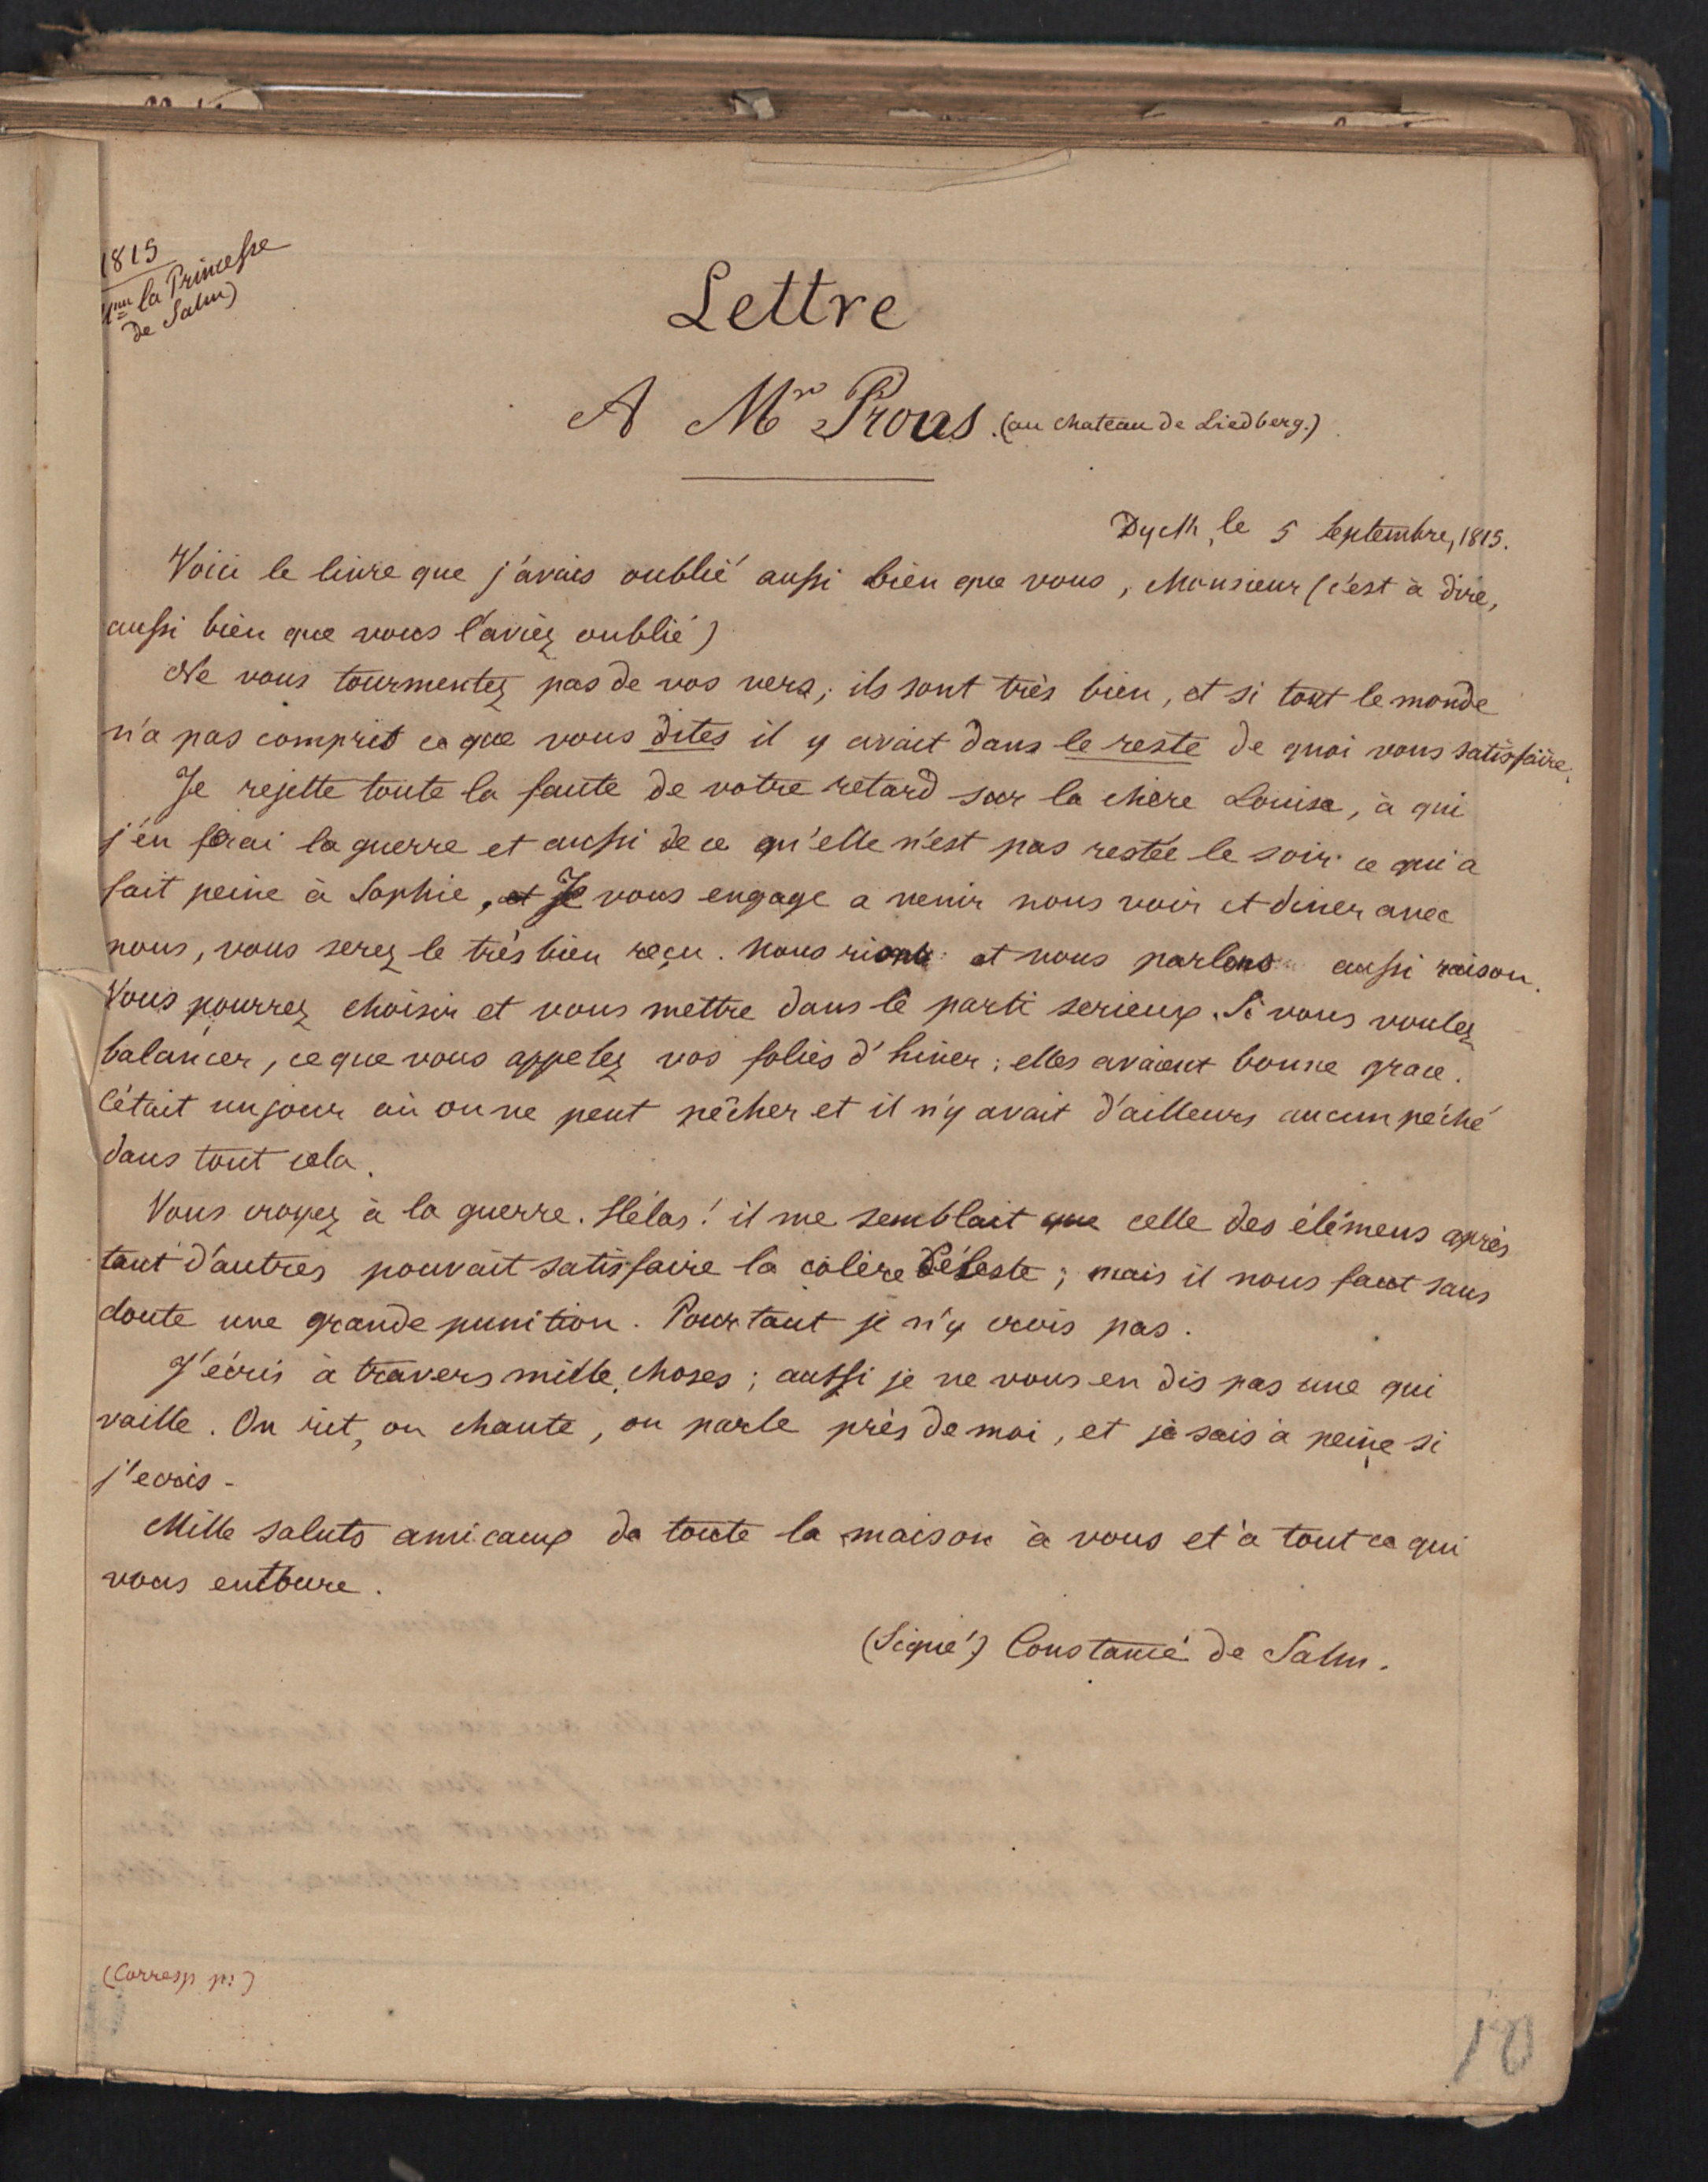 1815
Mme la Princesse
de Salm)
Lettre
A Mr Prous. (au chateau de Liedberg.)
Dyck, le 5 Septembre, 1815.
Voici le livre que j'avais oublié aussi bien que vous, Monsieur (c'est à dire,
aussi bien que vous l'aviez oublié)
Ne vous tourmentez pas de vos vers; ils sont très bien, et si tout le monde
n'a pas compris ce que vous dites il y avait dans le reste de quoi vous satisfaire.
Je rejette toute la faute de votre retard sur la chère Louise, à qui
j'en ferai la guerre et aussi de ce qu'elle n'est pas restée le soir ce qui a
fait peine à Sophie, et Je vous engage a venir nous voir et diner avec
nous, vous serez le très bien reçu. Nous rions et nous parlons aussi raison.
Vous pourrez choisir et vous mettre dans le parti serieux. Si vous voulez
balancer, ce que vous appelez vos folies d'hiver; elles avaient bonne grace.
C'était un jour où on ne peut pêcher et il n'y avait d'ailleurs aucun péché
dans tout cela.
Vous croyez à la guerre. Hélas! il me semblait que celle des élémens après
tant d'autres pouvait satisfaire la colère Céleste; mais il nous faut sans
doute une grande punition. Pourtant je n'y crois pas.
J'écris à travers mille choses; aussi je ne vous en dis pas une qui
vaille. On rit, on chante, on parle près de moi, et je sais à peine si
j'ecris-
Mille saluts amicaux de toute la maison à vous et à tout ce qui
vous entoure.
(Signé) Constance de Salm.
(Corresp pi)
10